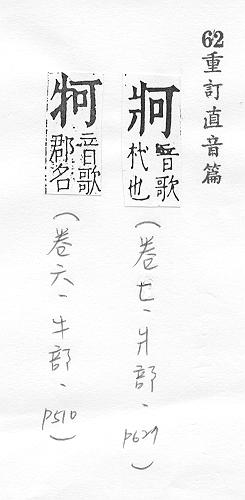 62重訂直音篇
牁 音歌
杙也
(卷七、爿部、p629)
牱 音歌
郡名
(卷六、牛部、p510)